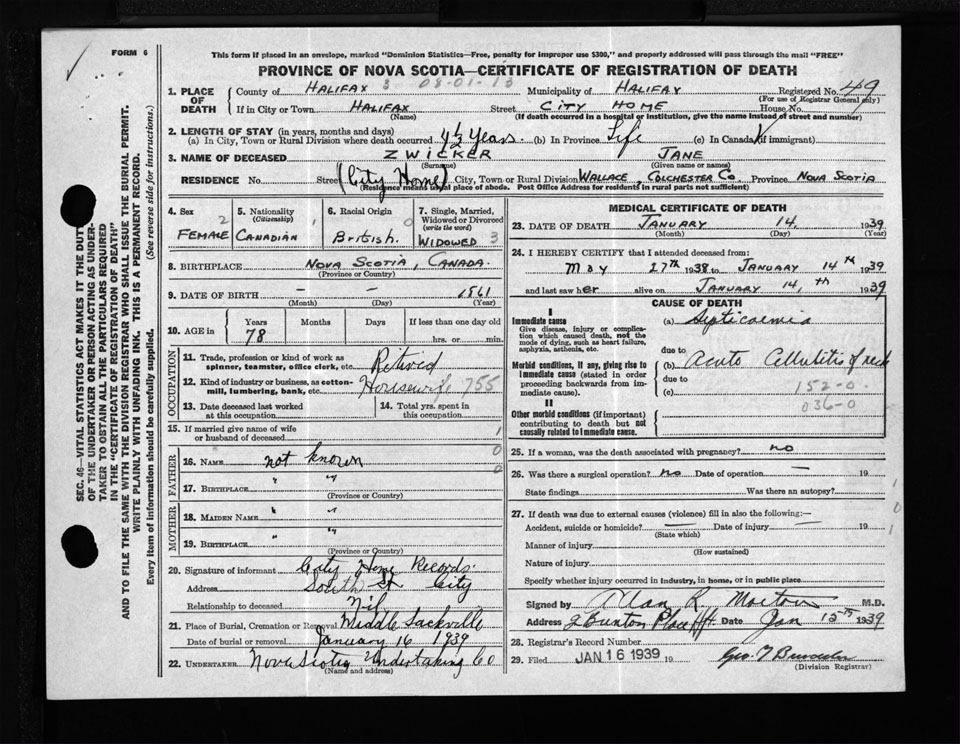 FORM 6
This form if placed in an envelope, marked "Dominion Statistics—Free, penalty for improper use $300," and properly addressed will pass through the mail "FREE"
PROVINCE OF NOVA SCOTIA—CERTIFICATE OF REGISTRATION OF DEATH
1. PLACE OF DEATH
County of HALIFAX 3 08-01-13 Municipality of HALIFAX Registered No. 49
(For use of Registrar General only)
If in City or Town HALIFAX Street CITY HOME House No.
(Name) (If death occurred in a hospital or institution, give the name instead of street and number)
2. LENGTH OF STAY (in years, months and days)
(a) In City, Town or Rural Division where death occurred 4½ years. (b) In Province Life (c) In Canada (if immigrant)
3. NAME OF DECEASED ZWICKER JANE
(Surname) (Given name or names)
RESIDENCE No. Street (City Home) City, Town or Rural Division WALLACE, COLCHESTER CO. Province NOVA SCOTIA
(Residence means usual place of abode. Post Office Address for residents in rural parts not sufficient)
4. Sex 2
FEMALE
5. Nationality (Citizenship) 1
CANADIAN
6. Racial Origin 0
British.
7. Single, Married, Widowed or Divorced (write the word)
WIDOWED 3
8. BIRTHPLACE NOVA SCOTIA, CANADA.
(Province or Country)
9. DATE OF BIRTH — — 1861
(Month) (Day) (Year)
10. AGE in Years Months Days If less than one day old
78 hrs. or min.
OCCUPATION
11. Trade, profession or kind of work as spinner, teamster, office clerk, etc. Retired
12. Kind of industry or business, as cotton-mill, lumbering, bank, etc. Housewife 755
13. Date deceased last worked at this occupation
14. Total yrs. spent in this occupation
15. If married give name of wife or husband of deceased 1
FATHER
16. NAME not known 0
17. BIRTHPLACE " " 0
(Province or Country)
MOTHER
18. MAIDEN NAME " "
19. BIRTHPLACE " "
(Province or Country)
20. Signature of informant City Home Records.
Address South St. City
Relationship to deceased Nil
21. Place of Burial, Cremation or Removal Middle Sackville
Date of burial or removal January 16 1939
22. UNDERTAKER Nova Scotia Undertaking Co
(Name and address)
MEDICAL CERTIFICATE OF DEATH
23. DATE OF DEATH JANUARY 14, 1939
(Month) (Day) (Year)
24. I HEREBY CERTIFY that I attended deceased from:
May 27th 1938 to JANUARY 14th 1939
and last saw her alive on JANUARY 14,th 1939
CAUSE OF DEATH
I
Immediate cause
Give disease, injury or complication which caused death, not the mode of dying, such as heart failure, asphyxia, asthenia, etc.
(a) Septicaemia
due to
Morbid conditions, if any, giving rise to Immediate cause (stated in order proceeding backwards from immediate cause).
(b) Acute Cellulitis of neck
due to
(c) 152-0
036-0
II
Other morbid conditions (if important) contributing to death but not causally related to Immediate cause.
25. If a woman, was the death associated with pregnancy? no
26. Was there a surgical operation? no Date of operation — 19
State findings Was there an autopsy?
27. If death was due to external causes (violence) fill in also the following:—
Accident, suicide or homicide? — Date of injury — 19
(State which)
Manner of injury
(How sustained)
Nature of injury
Specify whether injury occurred in industry, in home, or in public place
Signed by Allan R. Morton M.D.
Address Date Jan 15th 1939
28. Registrar's Record Number
29. Filed JAN 16 1939 19
(Division Registrar)
SEC. 46—VITAL STATISTICS ACT MAKES IT THE DUTY OF THE UNDERTAKER OR PERSON ACTING AS UNDERTAKER TO OBTAIN ALL THE PARTICULARS REQUIRED IN THE "CERTIFICATE OF REGISTRATION OF DEATH"
AND TO FILE THE SAME WITH THE DIVISION REGISTRAR WHO SHALL ISSUE THE BURIAL PERMIT.
WRITE PLAINLY WITH UNFADING INK. THIS IS A PERMANENT RECORD.
Every item of information should be carefully supplied. (See reverse side for instructions.)